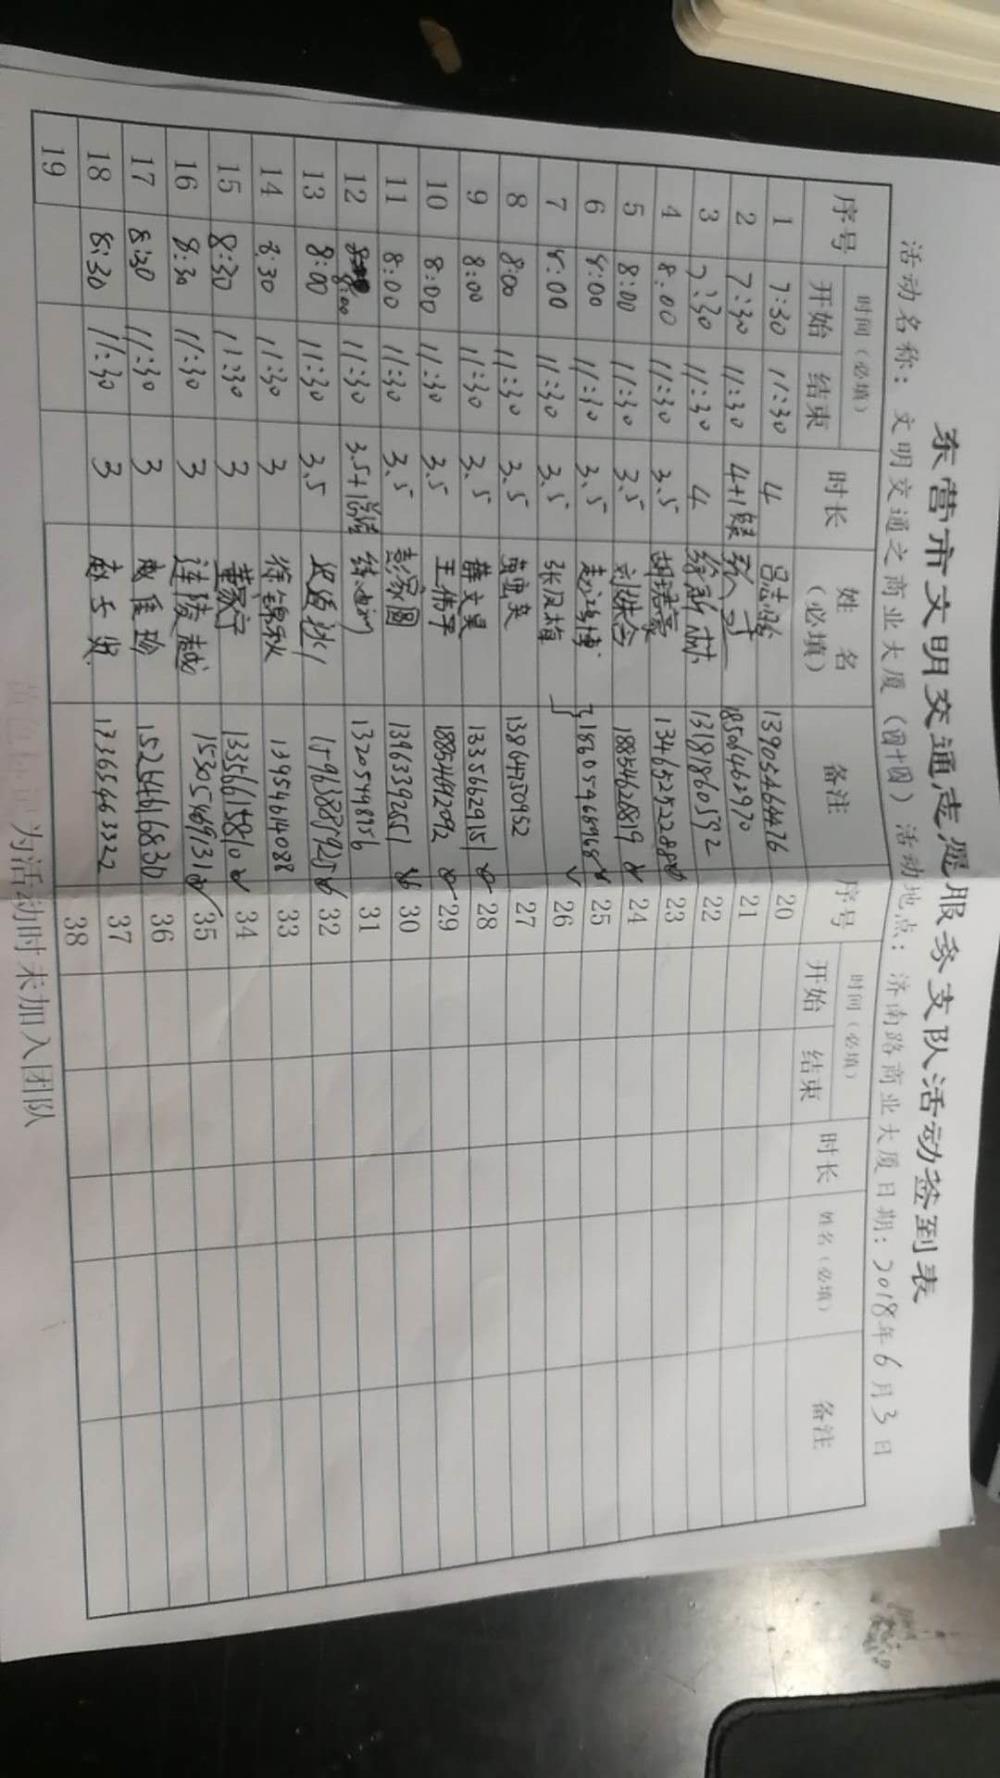 东营市文明交通志愿服务支队活动签到表
活动名称：文明交通之商业大厦（四十四）活动地点：济南路商业大厦日期：2018年6月3日
序号 时间（必填） 时长 姓名（必填） 备注 序号 时间（必填） 时长 姓名（必填） 备注
开始 结束 开始 结束
1 7:30 11:30 4 吕志鹏 13905464476 20
2 7:30 11:30 4+1 18506462970 21
3 7:30 11:30 4 徐新林 13181860592 22
4 8:00 11:30 3.5 胡瑞豪 13465252288 23
5 8:00 11:30 3.5 18854628819 24
6 8:00 11:30 3.5 18205468968 25
7 8:00 11:30 3.5 张风梅 26
8 8:00 11:30 3.5 13864730952 27
9 8:00 11:30 3.5 薛文昊 13356629151 28
10 8:00 11:30 3.5 王伟平 18854442092 29
11 8:00 11:30 3.5 彭家圆 13963392651 30
12 8:00 11:30 3.5+1总结 13205494856 31
13 8:00 11:30 3.5 15963887925 32
14 8:30 11:30 3 徐锦秋 13954614088 33
15 8:30 11:30 3 董家宁 13356615810 34
16 8:30 11:30 3 连陵越 15305469131 35
17 8:30 11:30 3 15244616830 36
18 8:30 11:30 3 13365463322 37
19 38
黄色标记为活动时未加入团队